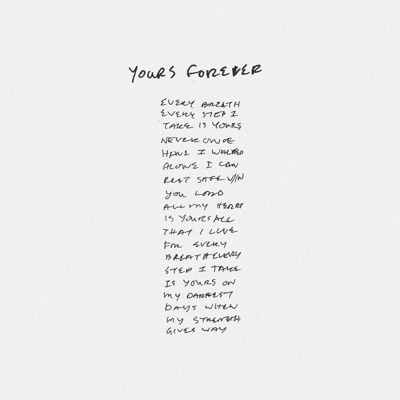 YOURS FOREVER
EVERY BREATH
EVERY STEP I
TAKE IS YOURS
NEVER ONCE
HAVE I WALKED
ALONE I CAN
REST SAFE W/IN
YOU LORD
ALL MY HEART
IS YOURS ALL
THAT I LIVE
FOR EVERY
BREATH EVERY
STEP I TAKE
IS YOURS ON
MY DARKEST
DAYS WHEN
MY STRENGTH
GIVES WAY